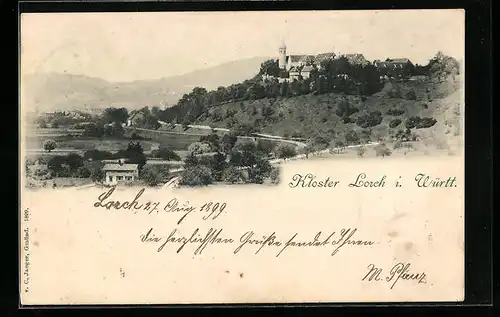 Kloster Lorch i. Württ.
Lorch 27. Aug 1899
Die herzlichsten Grüße sendet Ihnen
M. Pfanz
v. C. Jaeger, Gmünd. 1899.